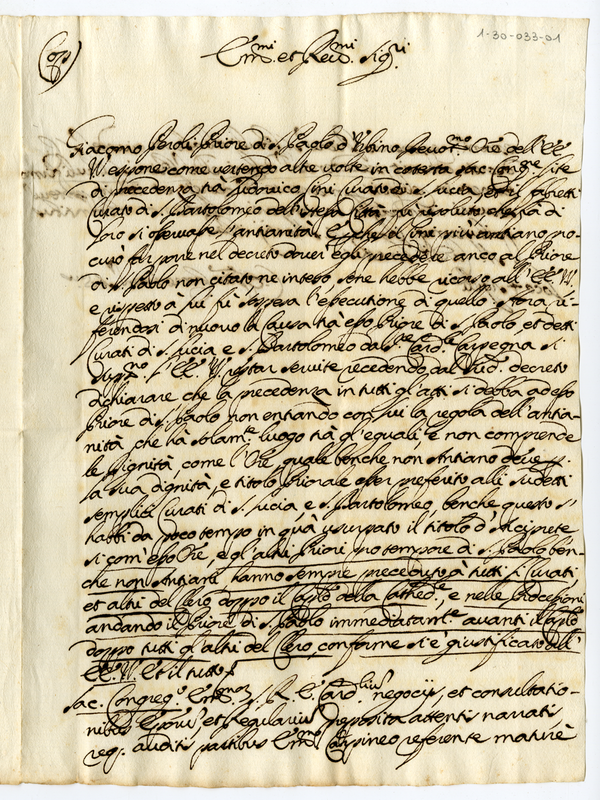 1-30-033-01
Em.mi et Rev.mi Sig.ri
Giacomo Peroli Priore di S. Paolo d'Urbino Devot.mo Or.e dell'EE
VV. espone come vertendo altre volte in cotesta Sac. Cong.ne lite
di precedenza trà Ludovico curato di S. Lucia, et il
Curato di S. Bartolomeo dell'istessa Città fù risoluto che trà di
loro si osservasse l'antianità, e perche il più antiano pro-
curò far porre nel decreto dover egli precedere anco al Priore
di S. Paolo non citato ne inteso, sene hebbe ricorso all'EE. VV.
e rispetto a lui fù sospesa l'essecutione di quello. Hora ri-
ferendosi di nuovo la causa trà esso Priore di S. Paolo, et detti
Curati di S. Lucia e S. Bartolomeo dal Sr. Card.le Carpegna si
supp.no l'EE. VV. restar servite recedendo dal sud.o decreto
dichiarare che la precedenza in tutti gl'atti si debba ad esso
Priore di S. Paolo non entrando con lui la regola dell'antia-
nità, che hà solam.te luogo trà gl'eguali e non comprende
le Dignità, come l'Or.e, quale benche non Antiano deve p.
la sua dignità, e titolo Priorale esser preferito alli sudetti
semplici Curati di S. Lucia e S. Bartolomeo, benche questo s'
habbi da poco tempo in quà usurpato il titolo d'Arciprete
si com'esso Or.e, e gl'altri Priori pro tempore di S. Paolo ben-
che non Antiani hanno sempre preceduto à tutti li Curati,
et altri del Clero doppo il Cap.lo della Cathed.le, e nelle processioni
andando il Priore di S. Paolo immediatam.te avanti il Cap.lo
doppo tutti gl'altri del Clero, conforme si è giustificato all'
EE. VV. Et il tutto
Sac. Congreg.o Em.mor. S. R. E. Card.lium negocijs, et consultatio-
nibus Episcor. et Regularium Preposita attentis narratis
reg. auditis partibus Em.mo Carpineo referente maturè